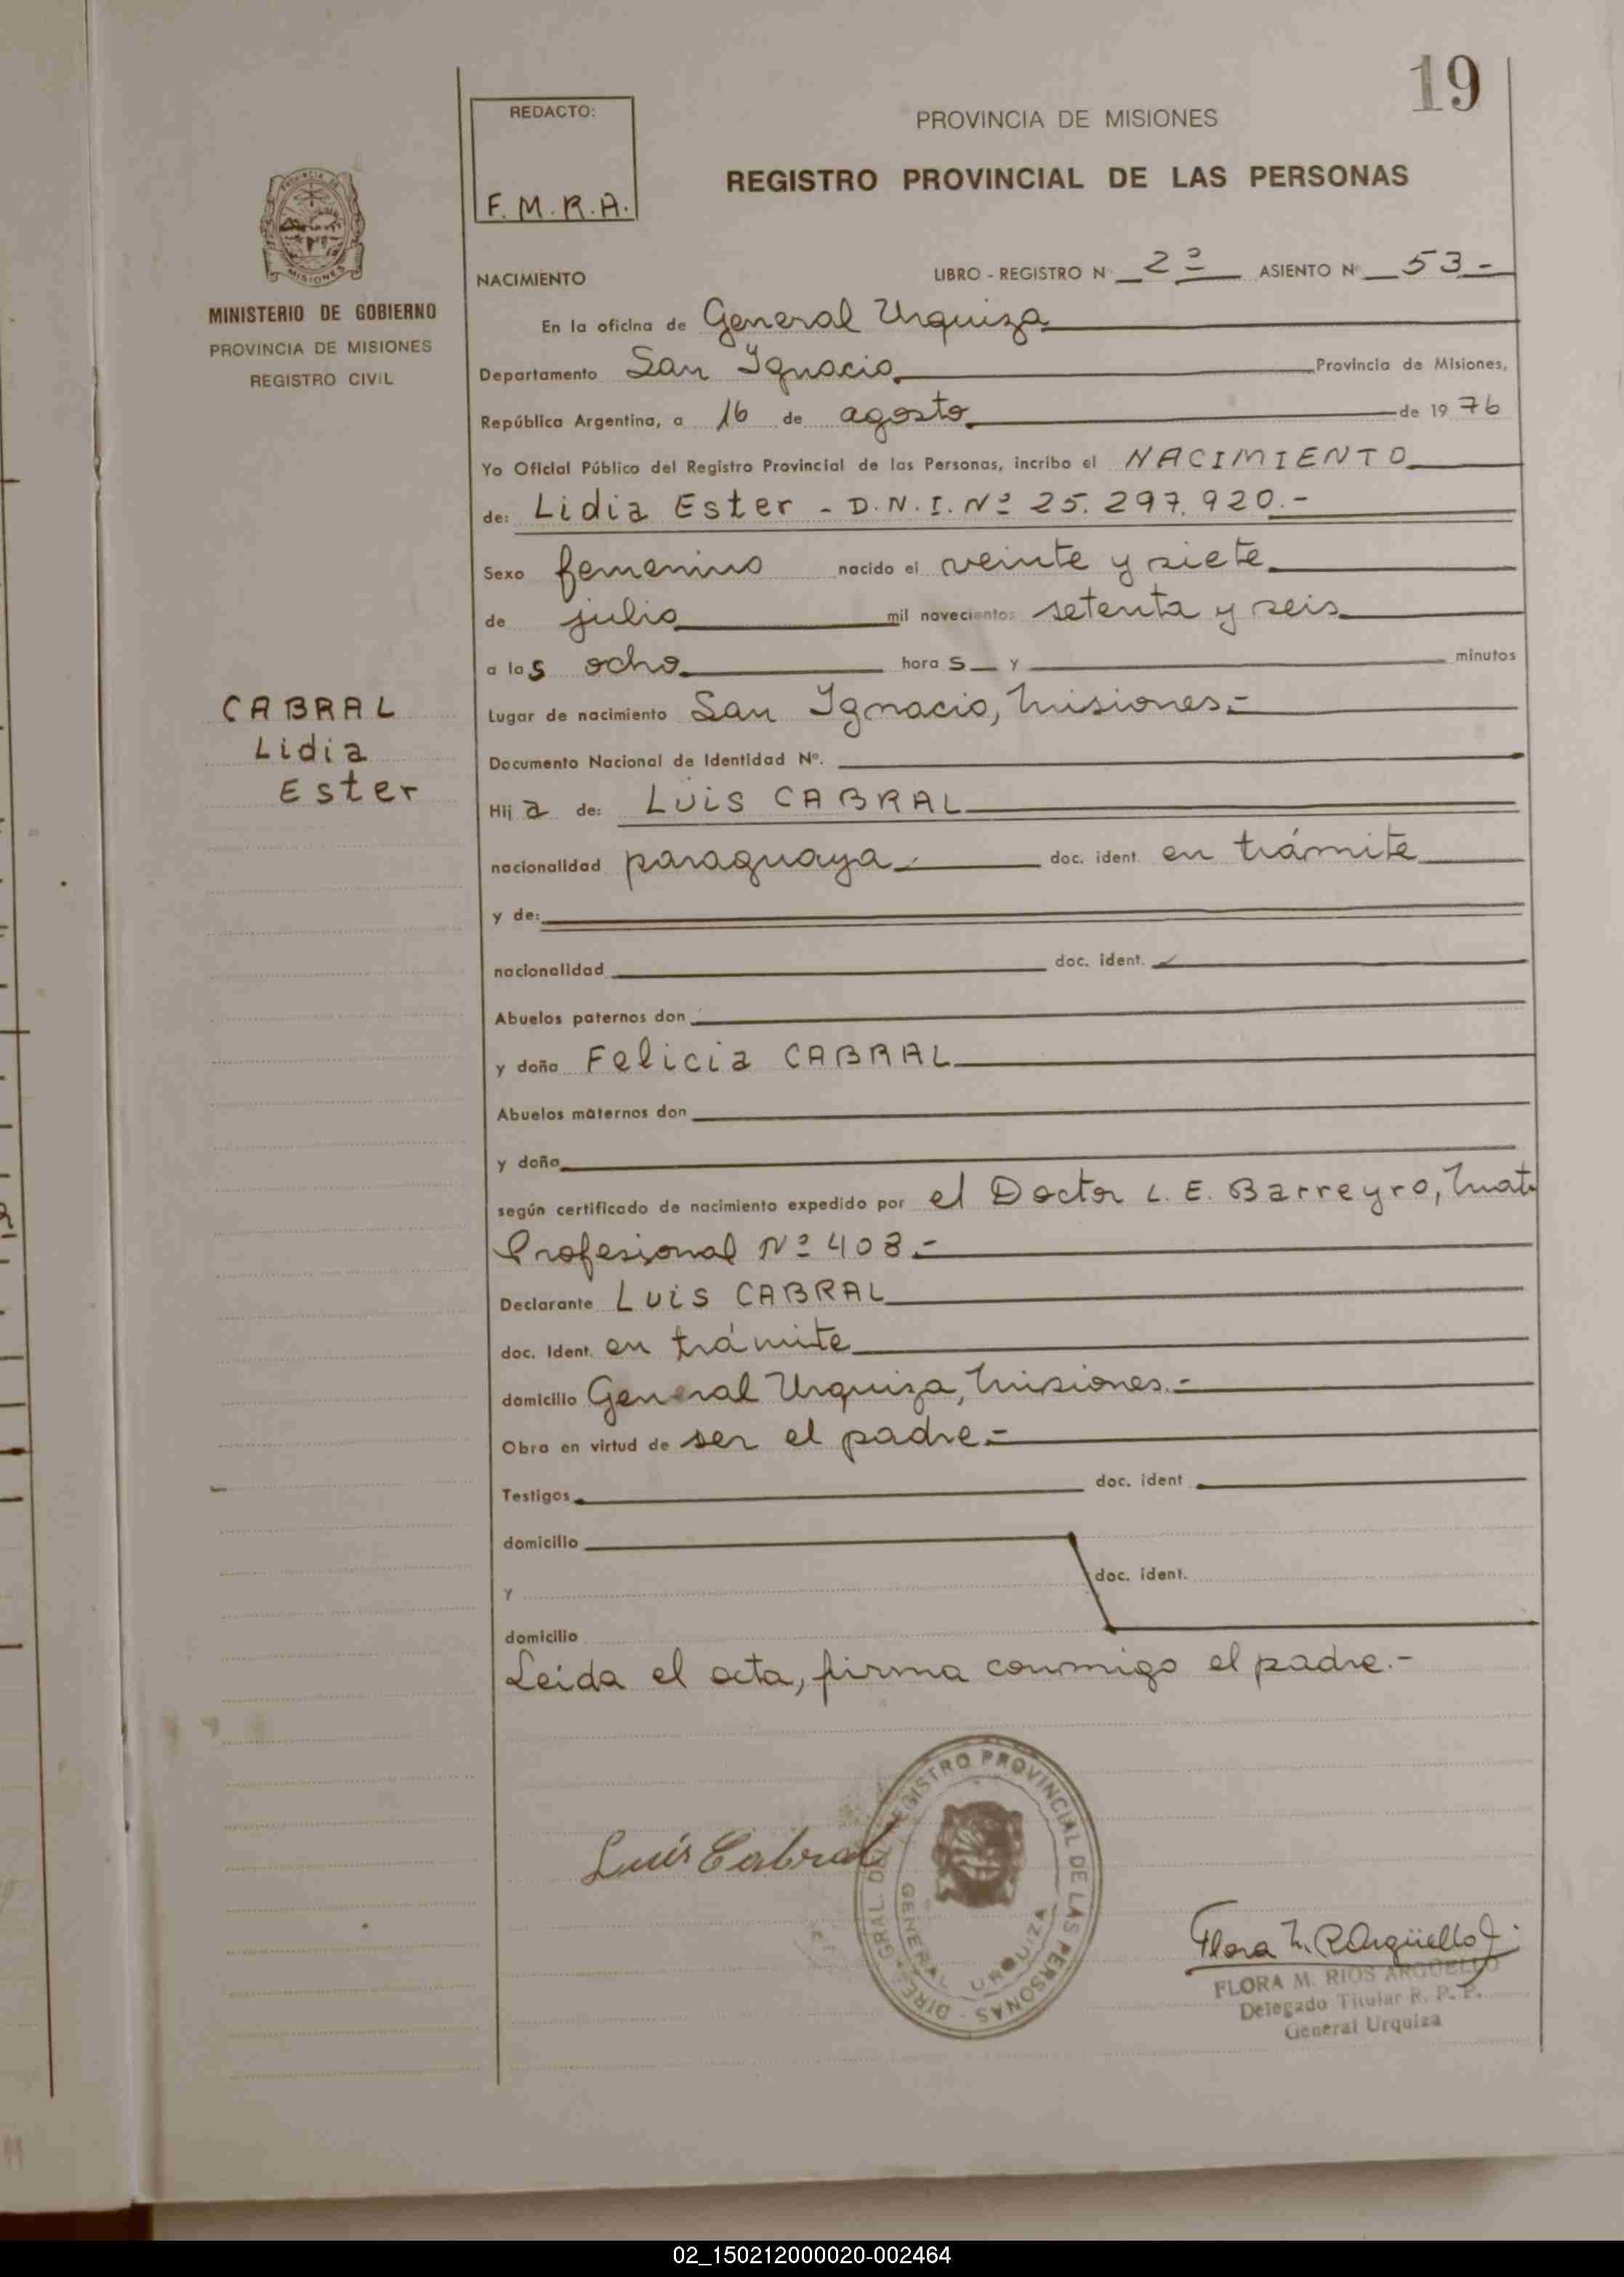 19
REDACTO:
F. M. R. A.
PROVINCIA DE MISIONES
REGISTRO PROVINCIAL DE LAS PERSONAS
PROVINCIA DE
MISIONES
MINISTERIO DE GOBIERNO
PROVINCIA DE MISIONES
REGISTRO CIVIL
NACIMIENTO LIBRO - REGISTRO Nº 2º ASIENTO Nº 53-
En la oficina de General Urquiza
Departamento San Ignacio Provincia de Misiones,
República Argentina, a 16 de agosto de 1976
Yo Oficial Público del Registro Provincial de las Personas, incribo el NACIMIENTO
de: Lidia Ester - D.N.I. Nº 25.297.920.-
Sexo femenino nacido el veinte y siete
de julio mil novecientos setenta y seis
a las ocho horas y minutos
Lugar de nacimiento San Ignacio, Misiones.-
CABRAL
Lidia
Ester
Documento Nacional de Identidad Nº.
Hija de: Luis CABRAL
nacionalidad paraguaya.- doc. ident. en trámite
y de:
nacionalidad doc. ident.
Abuelos paternos don
y doña Felicia CABRAL
Abuelos maternos don
y doña
según certificado de nacimiento expedido por el Doctor L. E. Barreyro, Mat.
Profesional Nº 408.-
Declarante Luis CABRAL
doc. Ident. en trámite
domicilio General Urquiza, Misiones.-
Obra en virtud de ser el padre.-
Testigos doc. ident
domicilio
y doc. ident.
domicilio
Leida el acta, firma conmigo el padre.-
Luis Cabral
DIREC. GRAL. DEL REGISTRO PROVINCIAL DE LAS PERSONAS -
GENERAL URQUIZA
Flora M. R. Argüello
FLORA M. RIOS ARGUELLO
Delegado Titular R. P. P.
General Urquiza
02_150212000020-002464